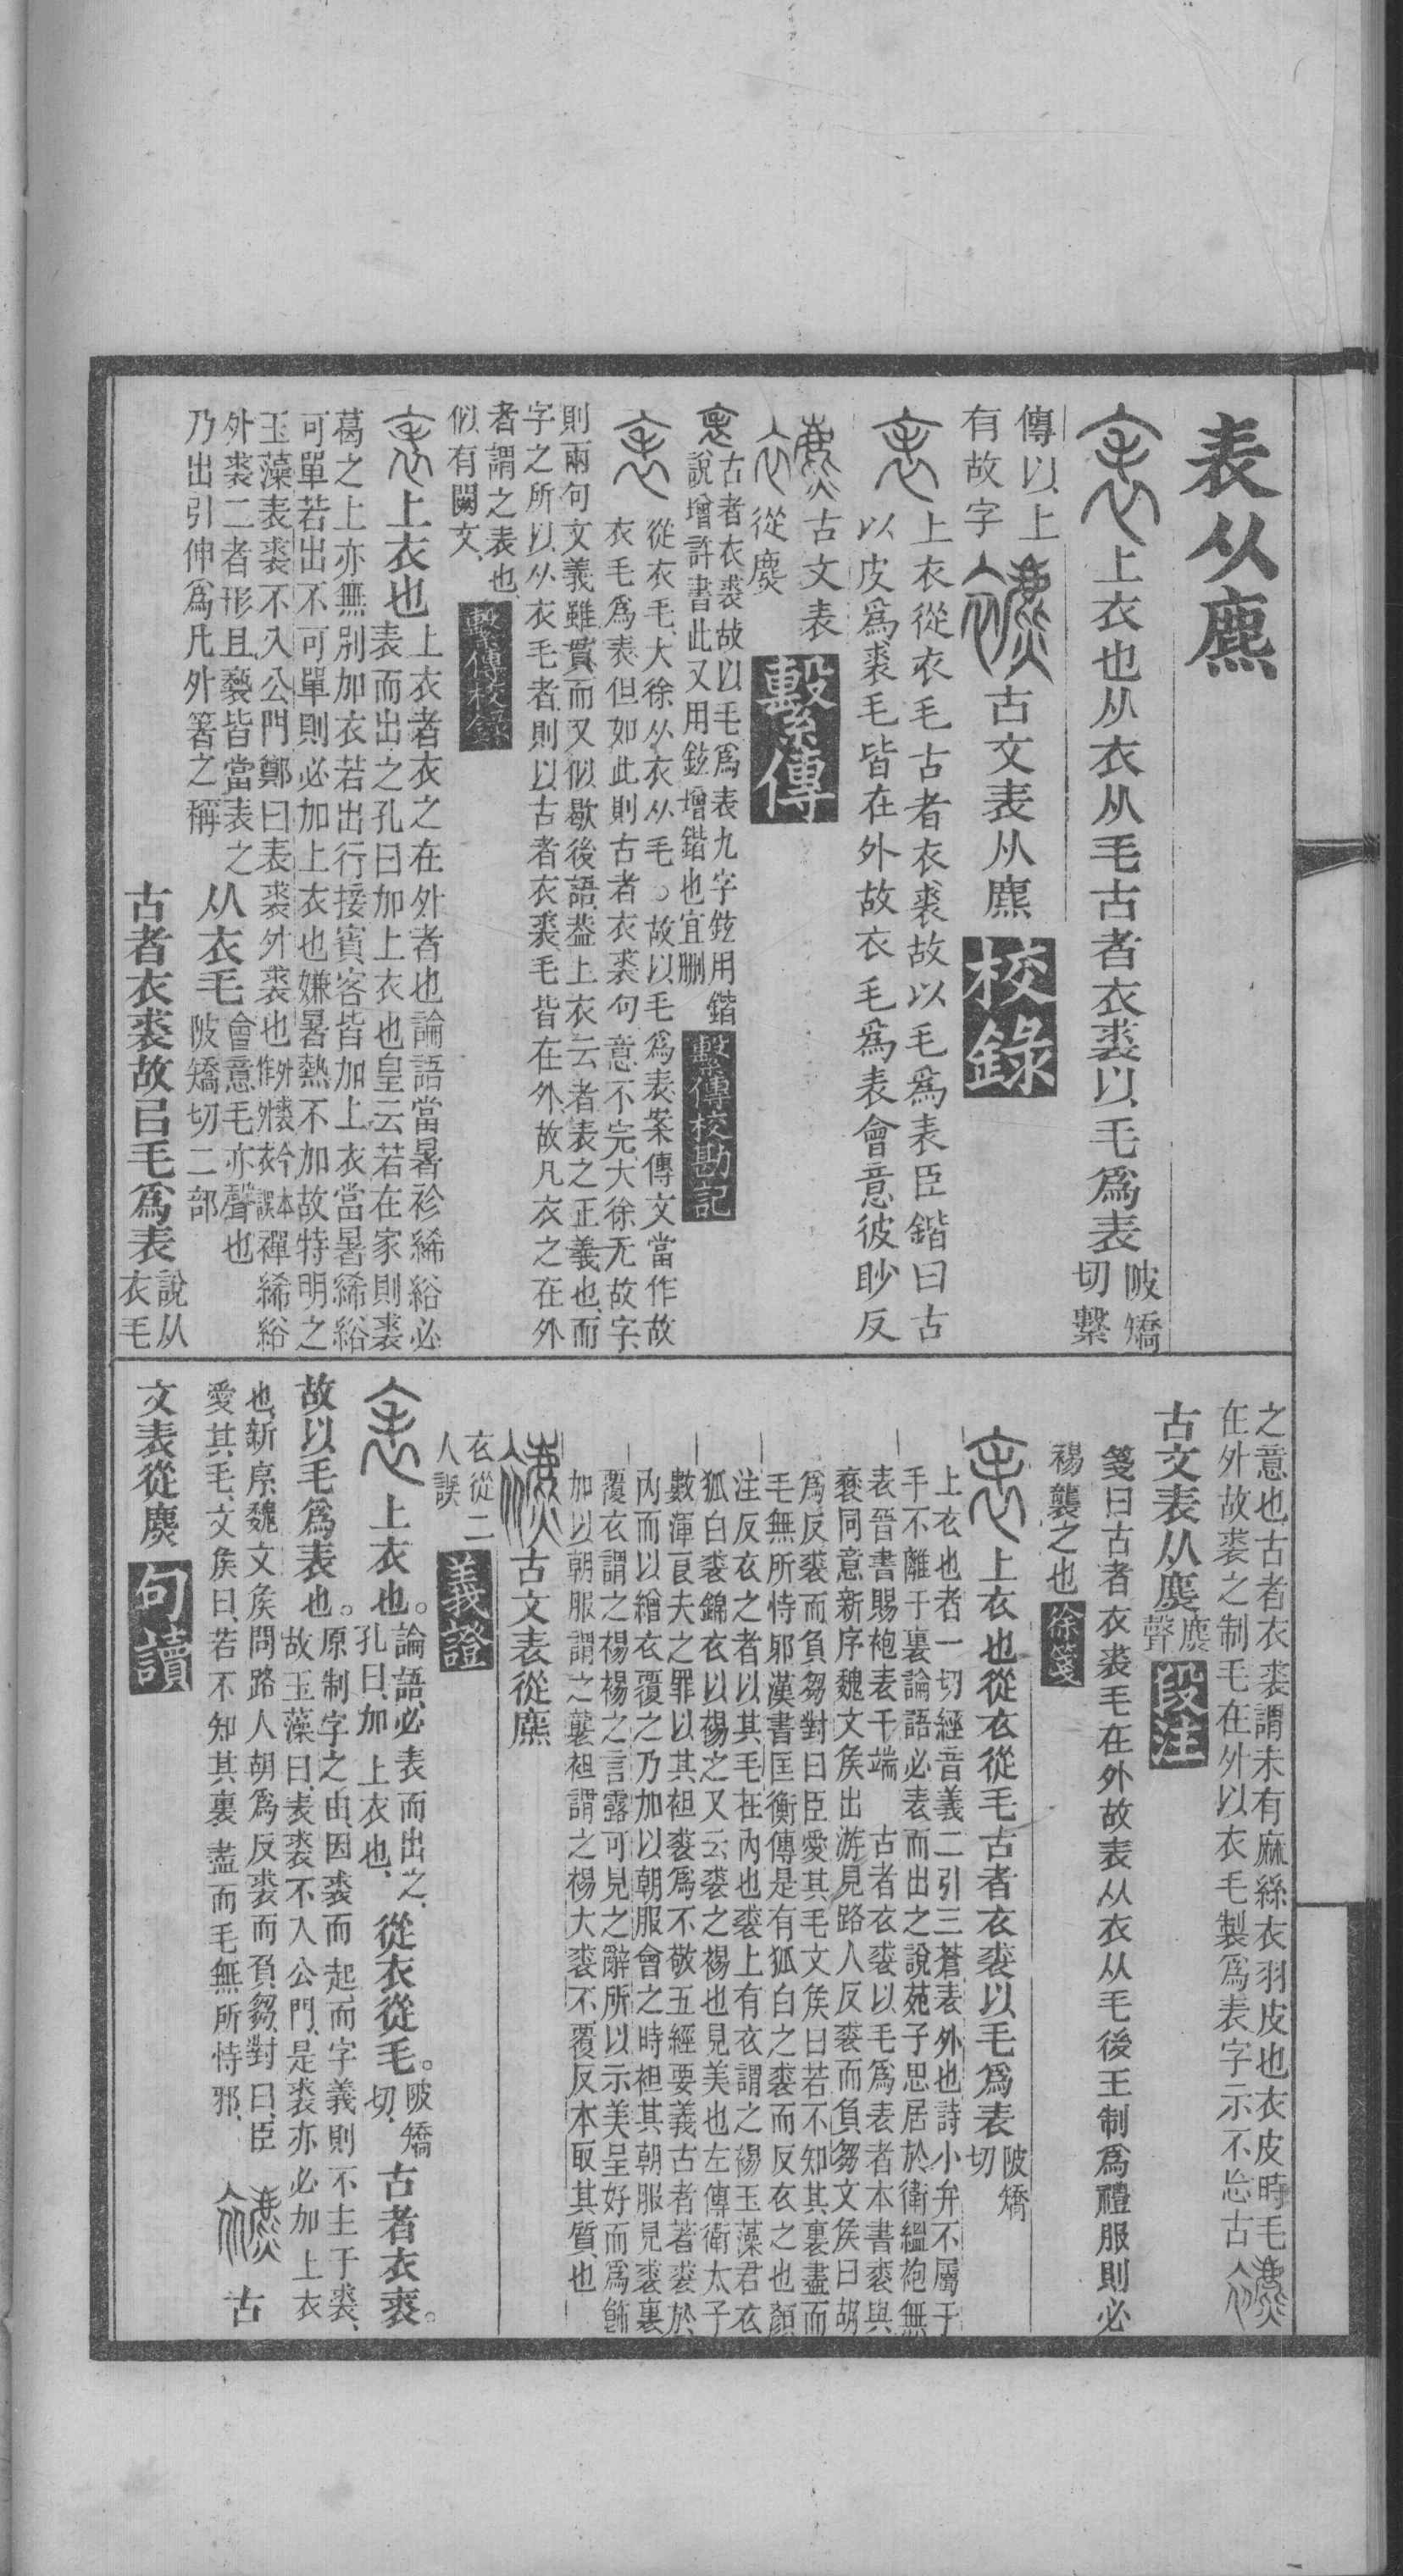 表从麃
上衣也从衣从毛古者衣裘以毛爲表
陂矯
切繫
傳以上
有故字
古文表从麃
校錄
上衣從衣毛古者衣裘故以毛爲表臣鍇曰古
以皮爲裘毛皆在外故衣毛爲表會意彼眇反
古文表
從麃
繫傳
古者衣裘故以毛爲表九字鉉用鍇
說增許書此又用鉉增鍇也宜刪
繫傳校勘記
從衣毛大徐从衣从毛○故以毛爲表案傳文當作故
衣毛爲表但如此則古者衣裘句意不完大徐无故字
則兩句文義雖貫而又似歇後語葢上衣云者表之正義也而
字之所以从衣毛者則以古者衣裘毛皆在外故凡衣之在外
者謂之表也
似有闕文
繫傳校錄
上衣也
上衣者衣之在外者也論語當暑袗絺綌必
表而出之孔曰加上衣也皇云若在家則裘
葛之上亦無別加衣若出行接賓客皆加上衣當暑絺綌
可單若出不可單則必加上衣也嫌暑熱不加故特明之
玉藻表裘不入公門鄭曰表裘外裘也外裘今本作外衣誤襌絺綌
外裘二者形且褻皆當表之
乃出引伸爲凡外箸之稱
从衣毛
會意毛亦聲也
陂矯切二部
古者衣裘故㠯毛爲表
說从
衣毛
之意也古者衣裘謂未有麻絲衣羽皮也衣皮時毛
在外故裘之制毛在外以衣毛製爲表字示不忘古
古文表从麃
麃
聲
段注
箋曰古者衣裘毛在外故表从衣从毛後王制爲禮服則必
裼襲之也
徐箋
上衣也從衣從毛古者衣裘以毛爲表
陂矯
切
上衣也者一切經音義二引三蒼表外也詩小弁不屬于
毛不離于裏論語必表而出之說苑子思居於衛縕袍無
表晉書賜袍表千端 古者衣裘以毛爲表者本書裘與
衰同意新序魏文侯出游見路人反裘而負芻文侯曰胡
爲反裘而負芻對曰臣愛其毛文侯曰若不知其裏盡而
毛無所恃邪漢書匡衡傳是有狐白之裘而反衣之也顏
注反衣之者以其毛在內也裘上有衣謂之裼玉藻君衣
狐白裘錦衣以裼之又云裘之裼也見美也左傳衛太子
數渾良夫之罪以其袒裘爲不敬五經要義古者著裘於
內而以繒衣覆之乃加以朝服會之時袒其朝服見裘裏
覆衣謂之裼裼之言露可見之辭所以示美呈好而爲飾
加以朝服謂之襲袒謂之裼大裘不覆反本取其質也
古文表從麃
衣從二
人誤
義證
上衣也。
論語必表而出之、
孔曰、加上衣也、
從衣從毛。
陂矯
切、
古者衣裘。
故以毛爲表也。
原制字之由、因裘而起、而字義則不主于裘、
故玉藻曰、表裘不入公門、是裘亦必加上衣
也、新序、魏文侯問路人胡爲反裘而負芻、對曰、臣
愛其毛、文侯曰、若不知其裏盡而毛無所恃邪、
古
文表從麃
句讀